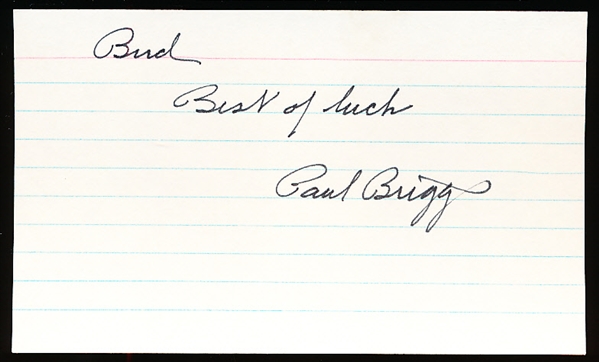 Bud
Best of luck
Paul Briggs